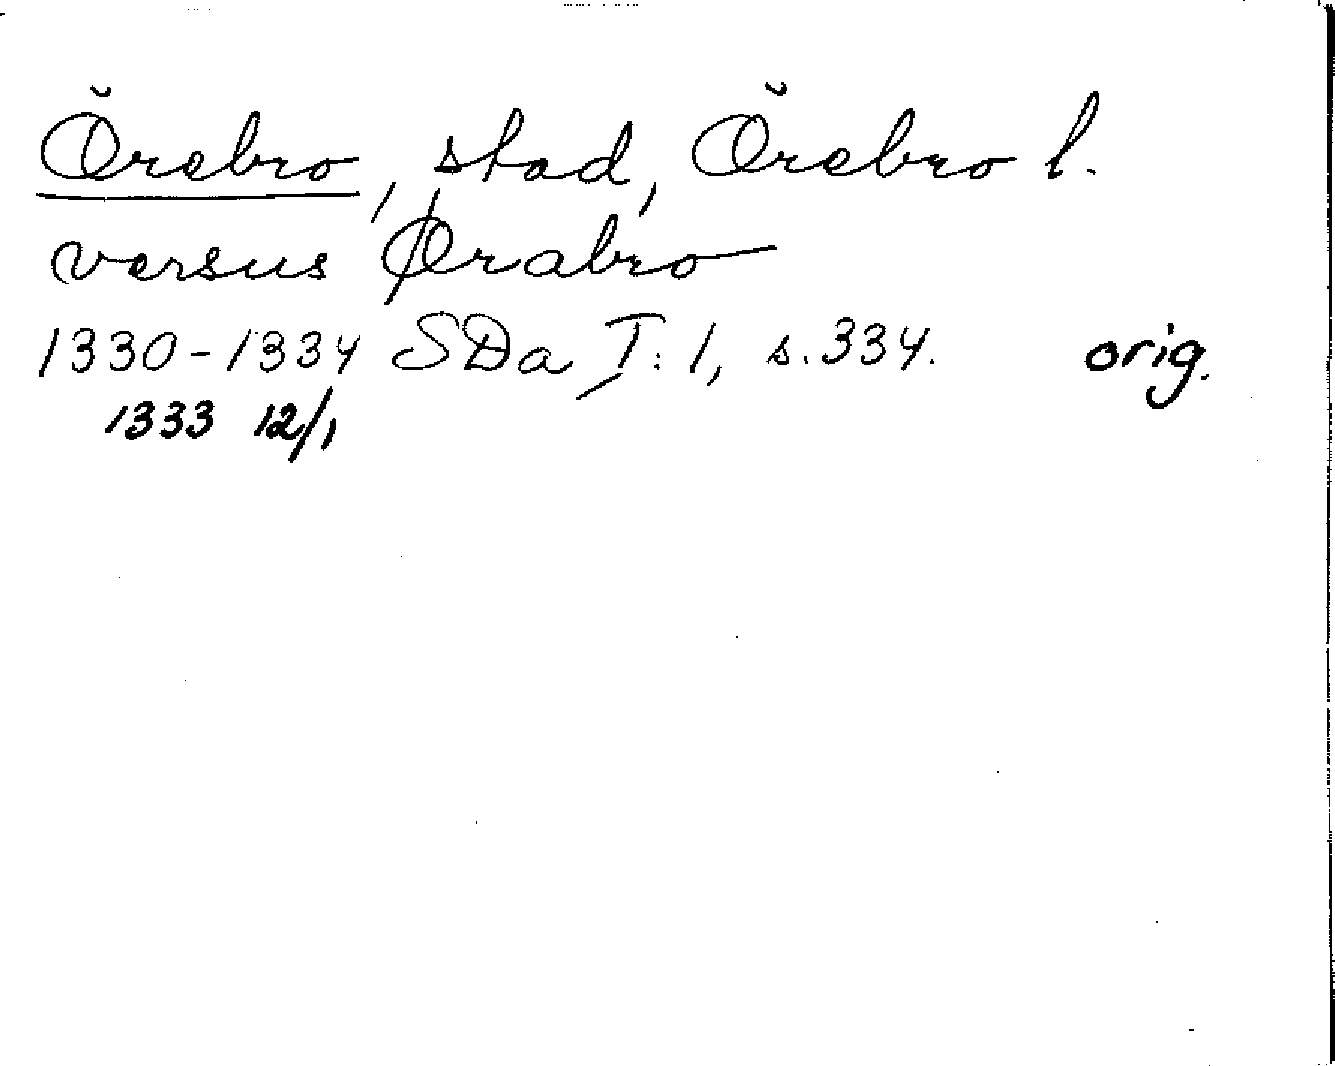 Örebro, stad, Örebro l.
versus Ørabro
1330-1334 SDa T: 1, s. 334. orig.
1333 12/1